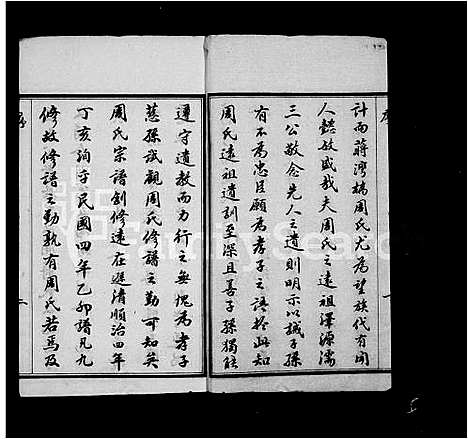 計而蔣灣橋周氏尤為望族代有聞
人懿歟盛哉夫周氏之遠祖澤源濡
三公敬念先人之遺則明示以誡子孫
有不為忠臣願為孝子之語於此知
周氏遠祖遺訓至深且善子孫獨能
遵守遺教而力行之無愧為孝子
慈孫試觀周氏修譜之勤可知矣
周氏宗譜創修遠在遜清順治四年
丁亥詢于民國四年乙卯譜凡九
修故修譜之勤孰有周氏若焉及
序
FamilySearch